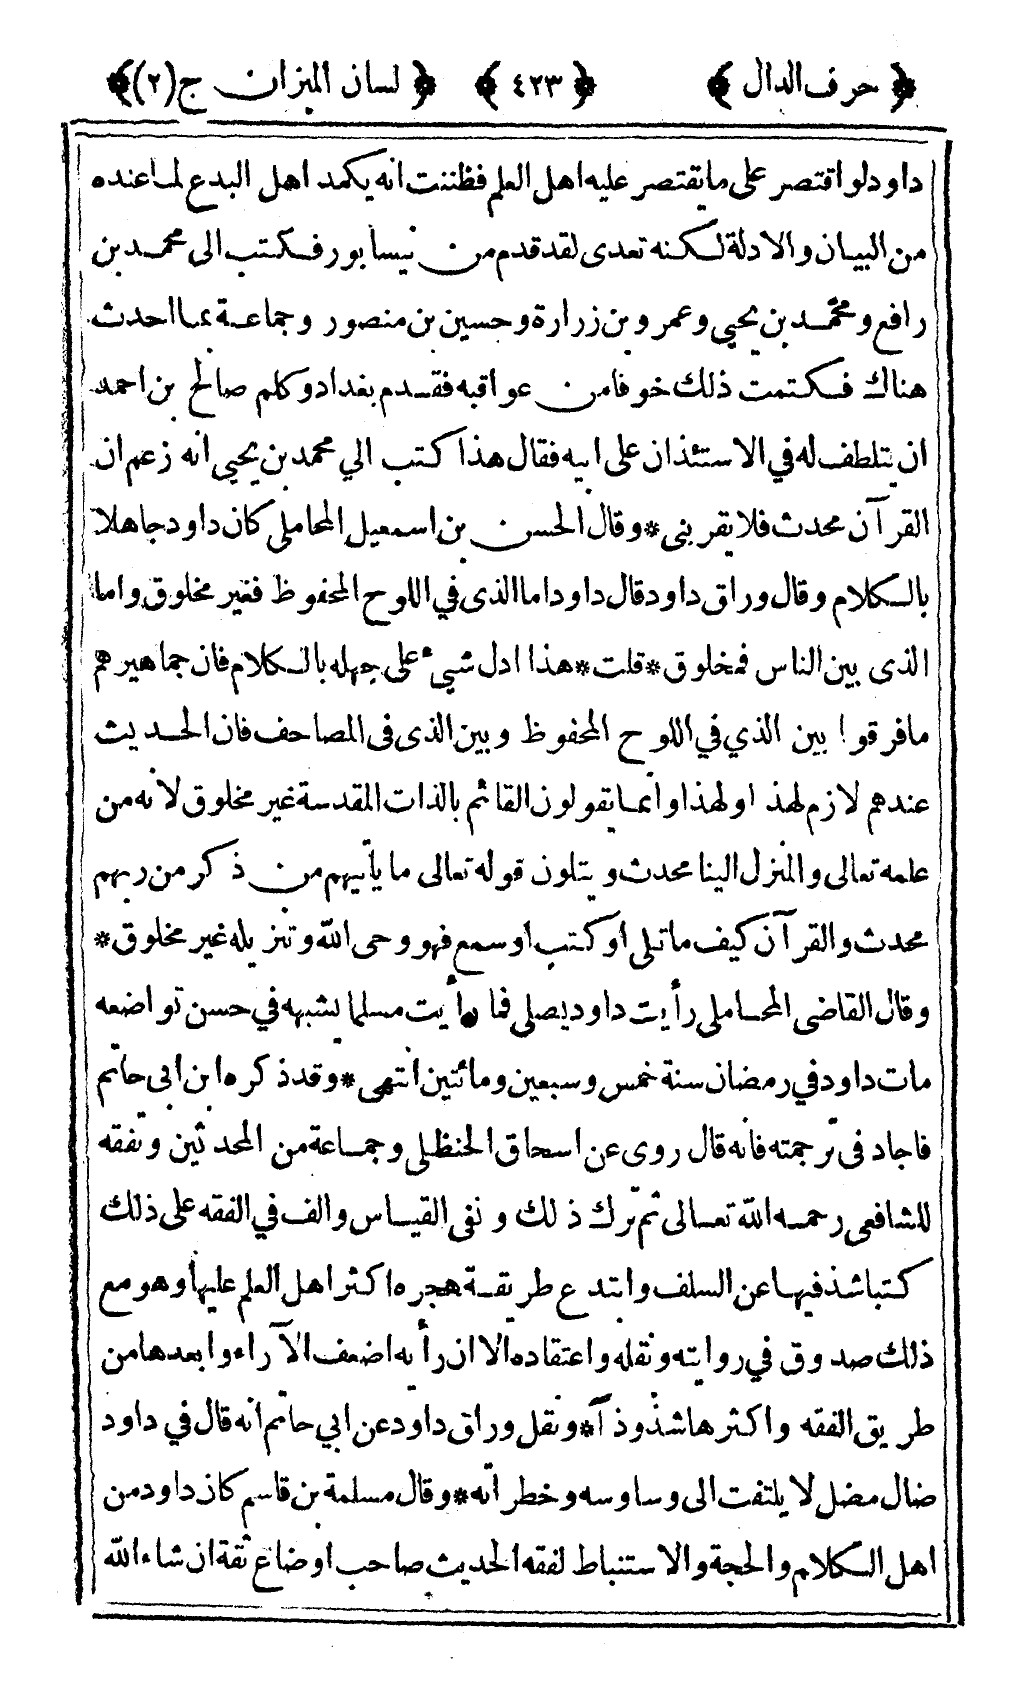 ﴿ حرف الدال ﴾ ﴿ ٤٢٣ ﴾ ﴿ لسان الميزان ج(٢)﴾
داود لو اقتصر على ما يقتصر عليه اهل العلم فظننت انه يكمد اهل البدع لما عنده
من البيان والادلة لكنه تعدى لقد قدم من نيسابور فكتب الى محمد بن
رافع ومحمد بن يحيى وعمرو بن زرارة وحسين بن منصور وجماعة بما احدث
هناك فكتمت ذلك خوفا من عواقبه فقدم بغداد وكلم صالح بن احمد
ان يتلطف له في الاستئذان على ابيه فقال هذا كتب الي محمد بن يحيى انه زعم ان
القرآن محدث فلا يقربنى * وقال الحسن بن اسمعيل المحاملى كان داود جاهلا
بالكلام وقال وراق داود قال داود اما الذى في اللوح المحفوظ فغير مخلوق واما
الذى بين الناس فمخلوق * قلت * هذا ادل شيء على جهله بالكلام فان جماهيرهم
ما فرقوا بين الذي في اللوح المحفوظ وبين الذى فى المصاحف فان الحديث
عندهم لازم لهذ او لهذا وانما يقولون القائم بالذات المقدسة غير مخلوق لانه من
علمه تعالى والمنزل الينا محدث ويتلون قوله تعالى ما يأتيهم من ذكر من ربهم
محدث والقرآن كيف ما تلى او كتب او سمع فهو وحى الله وتنزيله غير مخلوق *
وقال القاضى المحاملى رأيت داود يصلى فما رأيت مسلما يشبهه في حسن تواضعه
مات داود في رمضان سنة خمس وسبعين ومائتين انتهى * وقد ذكره ابن ابى حاتم
فاجاد فى ترجمته فانه قال روى عن اسحاق الحنظلى وجماعة من المحدثين وتفقه
للشافعى رحمه الله تعالى ثم ترك ذلك ونفى القياس والف في الفقه على ذلك
كتبا شذ فيها عن السلف وابتدع طريقة هجره اكثر اهل العلم عليها وهو مع
ذلك صدوق في روايته ونقله واعتقاده الا ان رأيه اضعف الآراء وابعدها من
طريق الفقه واكثرها شذوذ اً * ونقل وراق داود عن ابي حاتم انه قال في داود
ضال مضل لا يلتفت الى وساوسه وخطراته * وقال مسلمة بن قاسم كان داود من
اهل الكلام والحجة والاستنباط لفقه الحديث صاحب اوضاع ثقة ان شاء الله